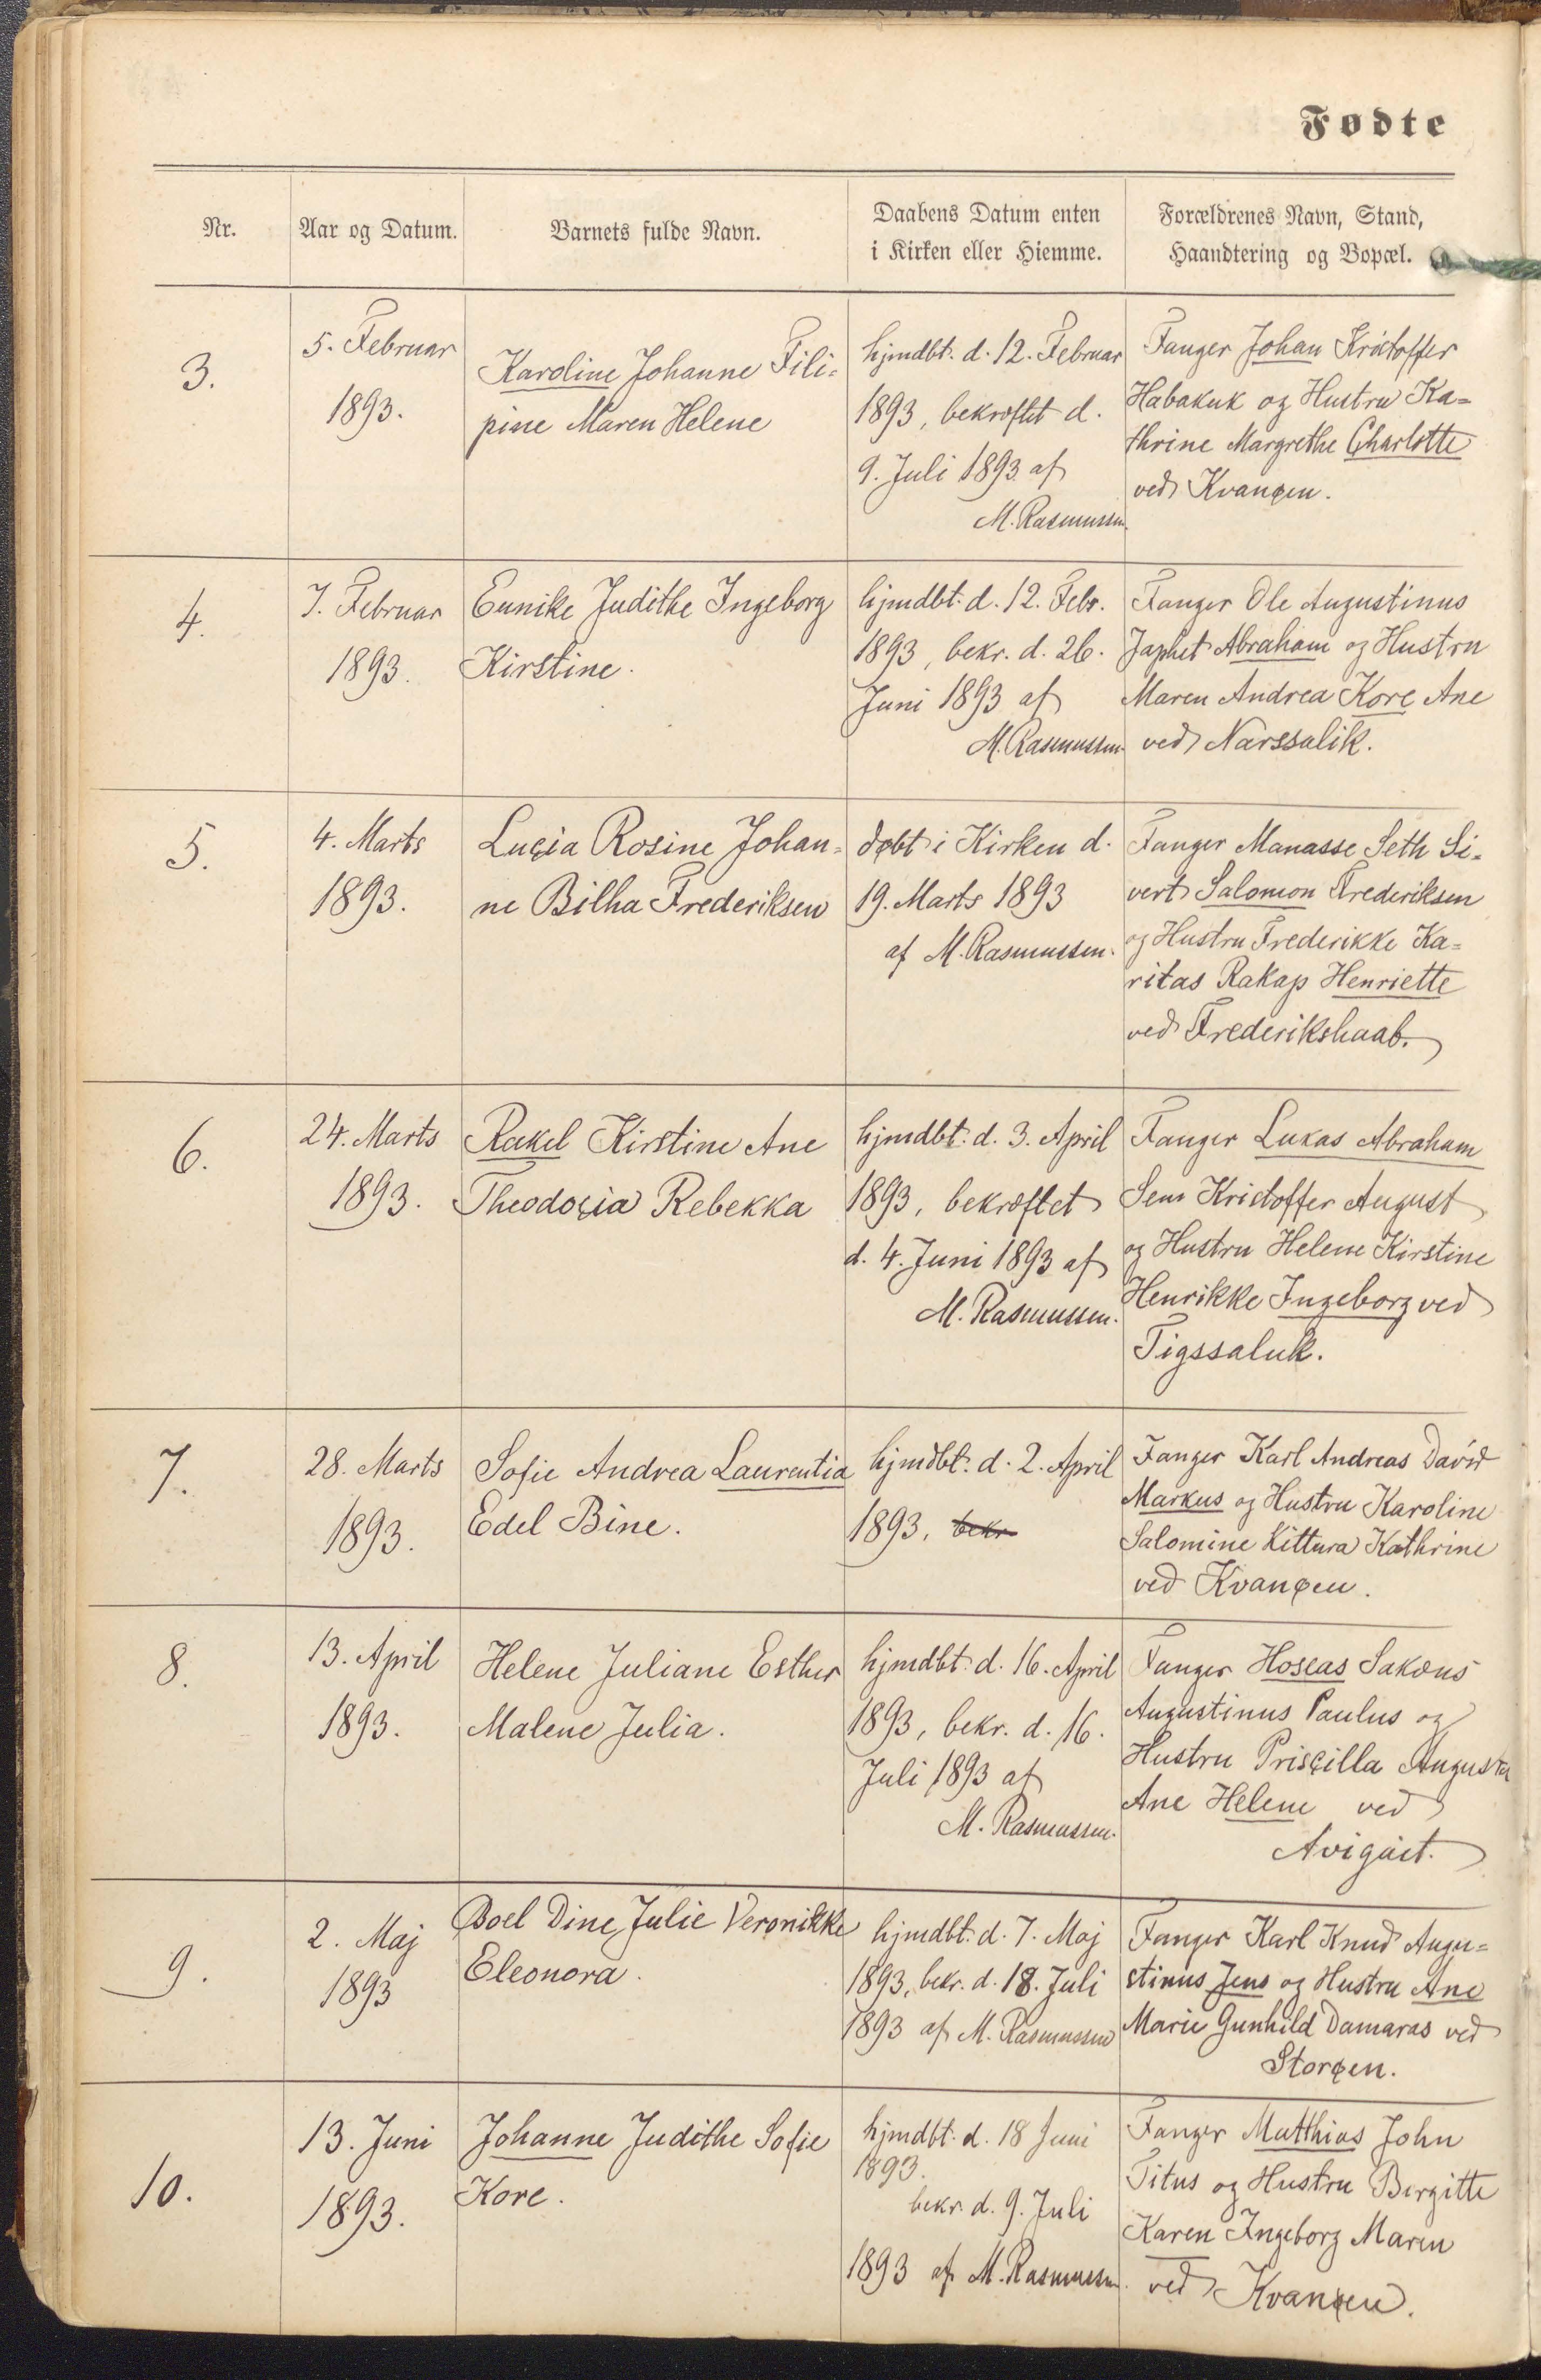 Fødte
Nr.
Aar og Datum.
Barnets fulde Navn.
Daabens Datum enten
i Kirken eller Hiemme.
Forældrenes Navn, Stand,
Haandtering og Bopæl.
3.
5. Februar
1893.
Karoline Johanne Fili-
pine Maren Helene
hjmdbt. d. 12. Februar
1893, bekræftet d.
9. Juli 1893 af
M. Rasmussen.
Fanger Johan Kristoffer
Habakuk og Hustru Ka-
thrine Margrethe Charlotte
ved Kvanøen.
4.
7. Februar
1893.
Eunike Judithe Ingeborg
Kirstine.
hjmdbt. d. 12. Febr.
1893, bekr. d. 26.
Juni 1893 af
M. Rasmussen.
Fanger Ole Augustinus
Japhet Abraham og Hustru
Maren Andrea Kore Ane
ved Narssalik.
5.
4. Marts
1893.
Luçia Rosine Johan-
ne Bilha Frederiksen
døbt i Kirken d.
19. Marts 1893
af M. Rasmussen.
Fanger Manasse Seth Si-
vert Salomon Frederiksen
og Hustru Frederikke Ka-
ritas Rakap Henriette
ved Frederikshaab.
6.
24. Marts
1893.
Rakel Kirstine Ane
Theodoçia Rebekka
hjmdbt. d. 3. April
1893, bekræftet
d. 4. Juni 1893 af
M. Rasmussen.
Fanger Lukas Abraham
Sem Kristoffer August
og Hustru Helene Kirstine
Henrikke Ingeborg ved
Tigssaluk.
7.
28. Marts
1893.
Sofie Andrea Laurentia
Edel Bine.
hjmdbt. d. 2. April
1893, bekr
Fanger Karl Andreas David
Markus og Hustru Karoline
Salomine Kittura Kathrine
ved Kvanøen.
8.
13. April
1893.
Helene Juliane Esther
Malene Julia.
hjmdbt. d. 16. April
1893, bekr. d. 16.
Juli 1893 af
M. Rasmussen.
Fanger Hoseas Sakæus
Augustinus Paulus og
Hustru Prisçilla Augusta
Ane Helene ved
Avigáit.
9.
2. Maj
1893
Boel Dine Julie Veronikke
Eleonora.
hjmdbt. d. 7. Maj
1893, bekr. d. 18. Juli
1893 af M. Rasmussen
Fanger Karl Knud Augu-
stinus Jens og Hustru Ane
Marie Gunhild Damaras ved
Storøen.
10.
13. Juni
1893.
Johanne Judithe Sofie
Kore.
hjmdbt. d. 18 Juni
1893.
bekr. d. 9. Juli
1893 af M. Rasmussen.
Fanger Matthias John
Titus og Hustru Birgitte
Karen Ingeborg Maren
ved Kvanøen.